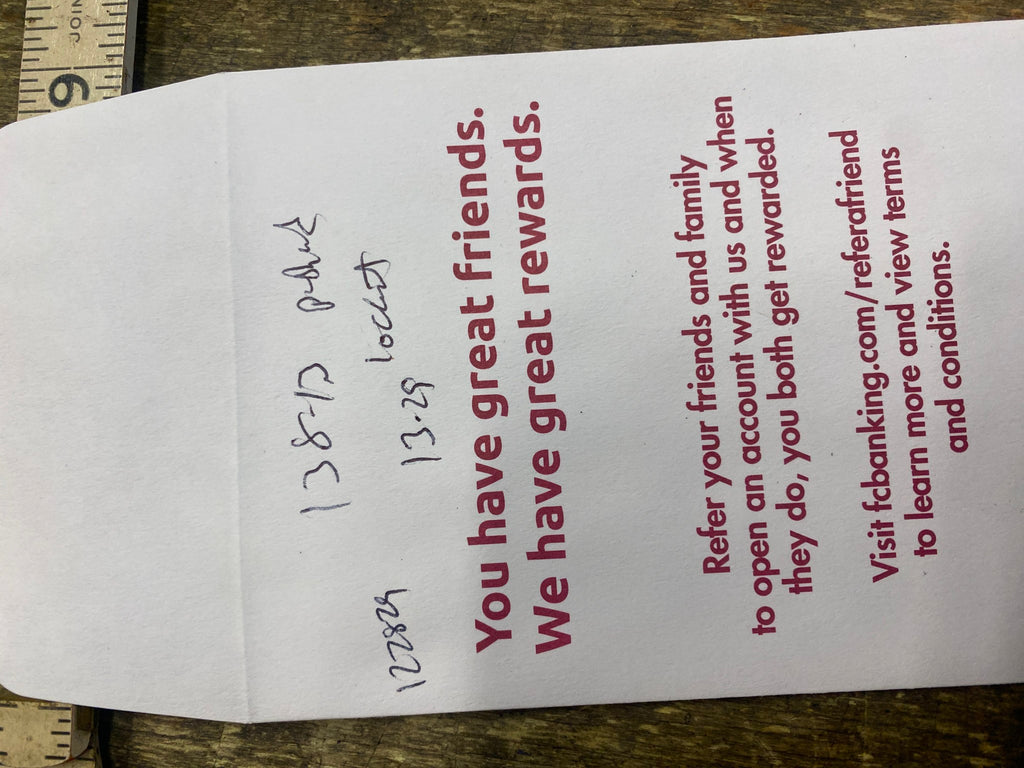 13813
122829 13.29 locket
You have great friends.
We have great rewards.
Refer your friends and family
to open an account with us and when
they do, you both get rewarded.
Visit fcbanking.com/referafriend
to learn more and view terms
and conditions.
9
JOIN